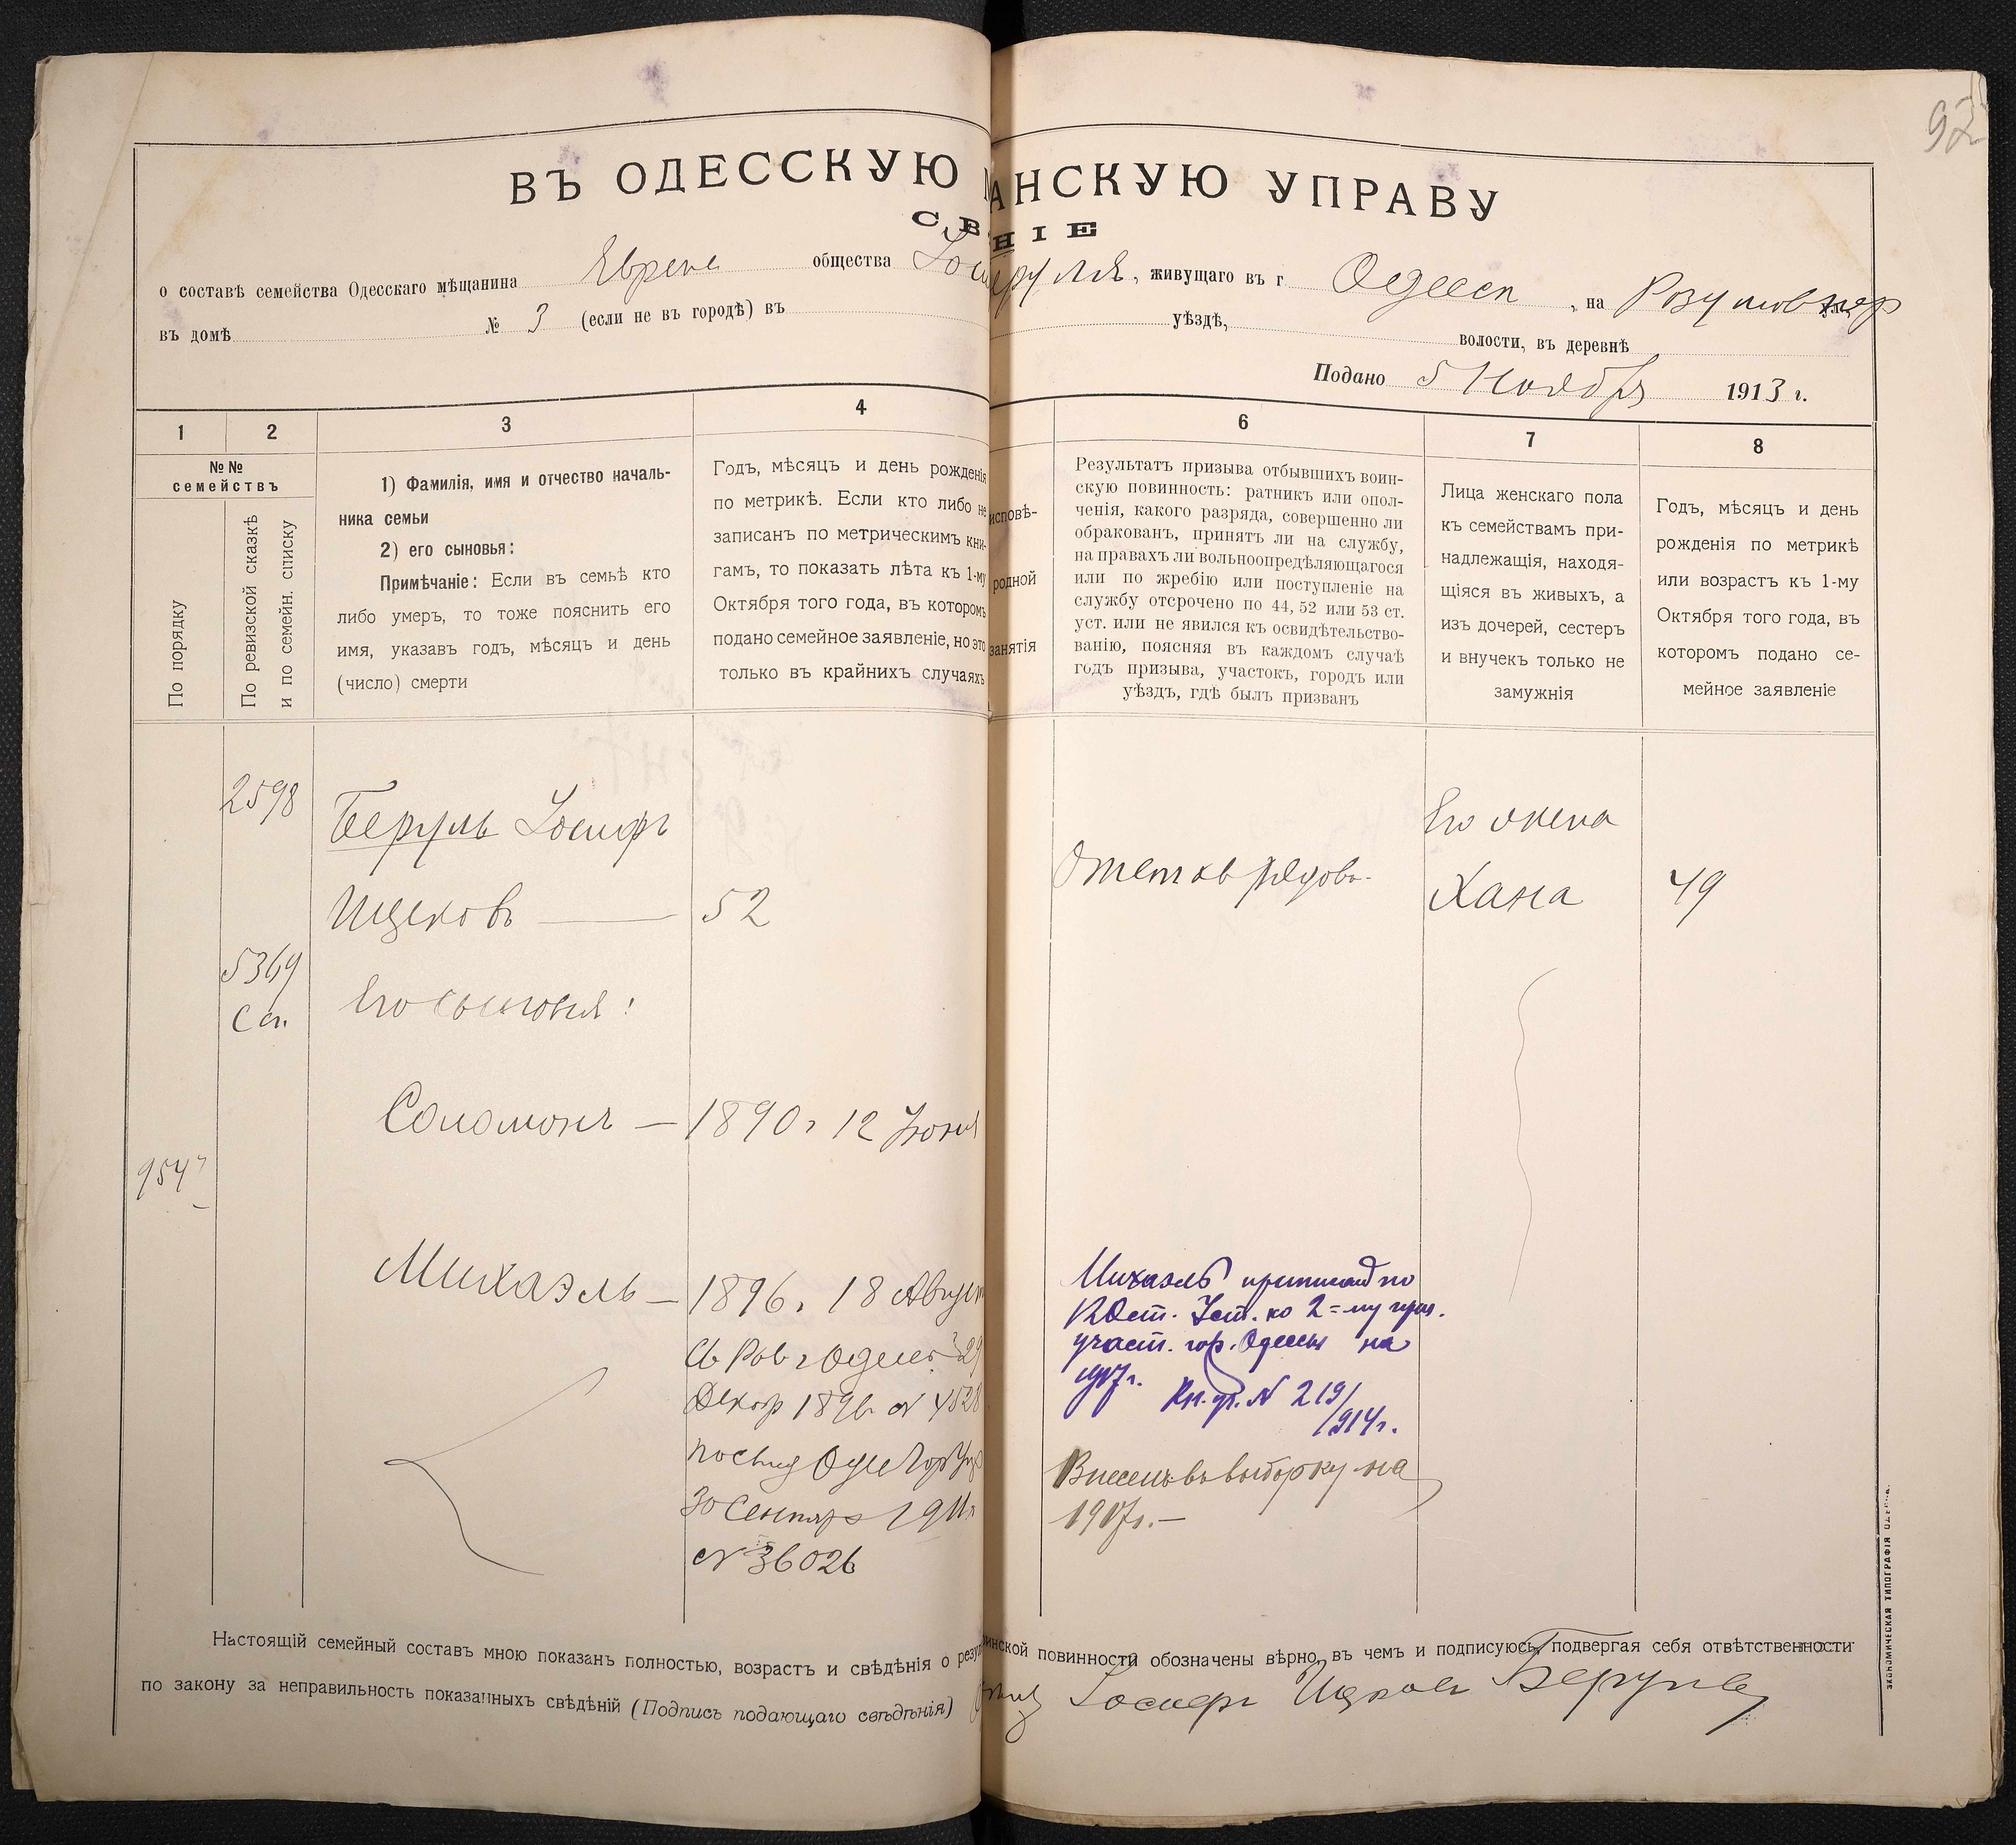 92
ВЪ ОДЕССКУЮ АНСКУЮ УПРАВУ
СВ НІЕ
о составѣ семейства Одесскаго мѣщанина Еврея общества , живущаго въ г Одессѣ , на
въ домѣ № 3 (если не въ городѣ) въ уѣздѣ, волости, въ деревнѣ
Подано 5 Ноября 1913 г.
1
2
3
4
6
7
8
№№
семействъ
По порядку
По ревизской сказкѣ
и по семейн. списку
1) Фамилія, имя и отчество началь-
ника семьи
2) его сыновья:
Примѣчаніе: Если въ семьѣ кто
либо умеръ, то тоже пояснить его
имя, указавъ годъ, мѣсяцъ и день
(число) смерти
Годъ, мѣсяцъ и день рожденія
по метрикѣ. Если кто либо не
записанъ по метрическимъ кни-
гамъ, то показать лѣта къ 1-му
Октября того года, въ которомъ
подано семейное заявленіе, но это
только въ крайнихъ случаяхъ
исповѣ-
родной
занятія
Результатъ призыва отбывшихъ воин-
скую повинность: ратникъ или опол-
ченія, какого разряда, совершенно ли
обракованъ, принятъ ли на службу,
на правахъ ли вольноопредѣляющагося
или по жребію или поступленіе на
службу отсрочено по 44, 52 или 53 ст.
уст. или не явился къ освидѣтельство-
ванію, поясняя въ каждомъ случаѣ
годъ призыва, участокъ, городъ или
уѣздъ, гдѣ былъ призванъ
Лица женскаго пола
къ семействамъ при-
надлежащія, находя-
щіяся въ живыхъ, а
изъ дочерей, сестеръ
и внучекъ только не
замужнія
Годъ, мѣсяцъ и день
рожденія по метрикѣ
или возрастъ къ 1-му
Октября того года, въ
которомъ подано се-
мейное заявленіе
2598
Беруль Іосифъ
Ицковъ — 52
Его жена
Хана 49
5369
Сп.
Его сыновья:
Соломонъ — 1890 г 12 Іюня
954
Михаэль — 1896 г 18 Август
29
Декабр 1896 № 4528
30 Сентяря 1911 г
№ 36026
Михаэль приписанъ по
Уст. ко 2=му приз.
участ. гор. Одессы на
1917 г.
№ 219/
/914 г.
Внесенъ въ выборку на
1917 г. —
Настоящій семейный составъ мною показанъ полностью, возрастъ и свѣдѣнія о резул инской повинности обозначены вѣрно, въ чемъ и подписуюсь, подвергая себя отвѣтственности
по закону за неправильность показанныхъ свѣдѣній (Подпись подающаго свѣдѣнія) Іосифъ Ицковъ Беруль
ЭКОНОМИЧЕСКАЯ ТИПОГРАФІЯ